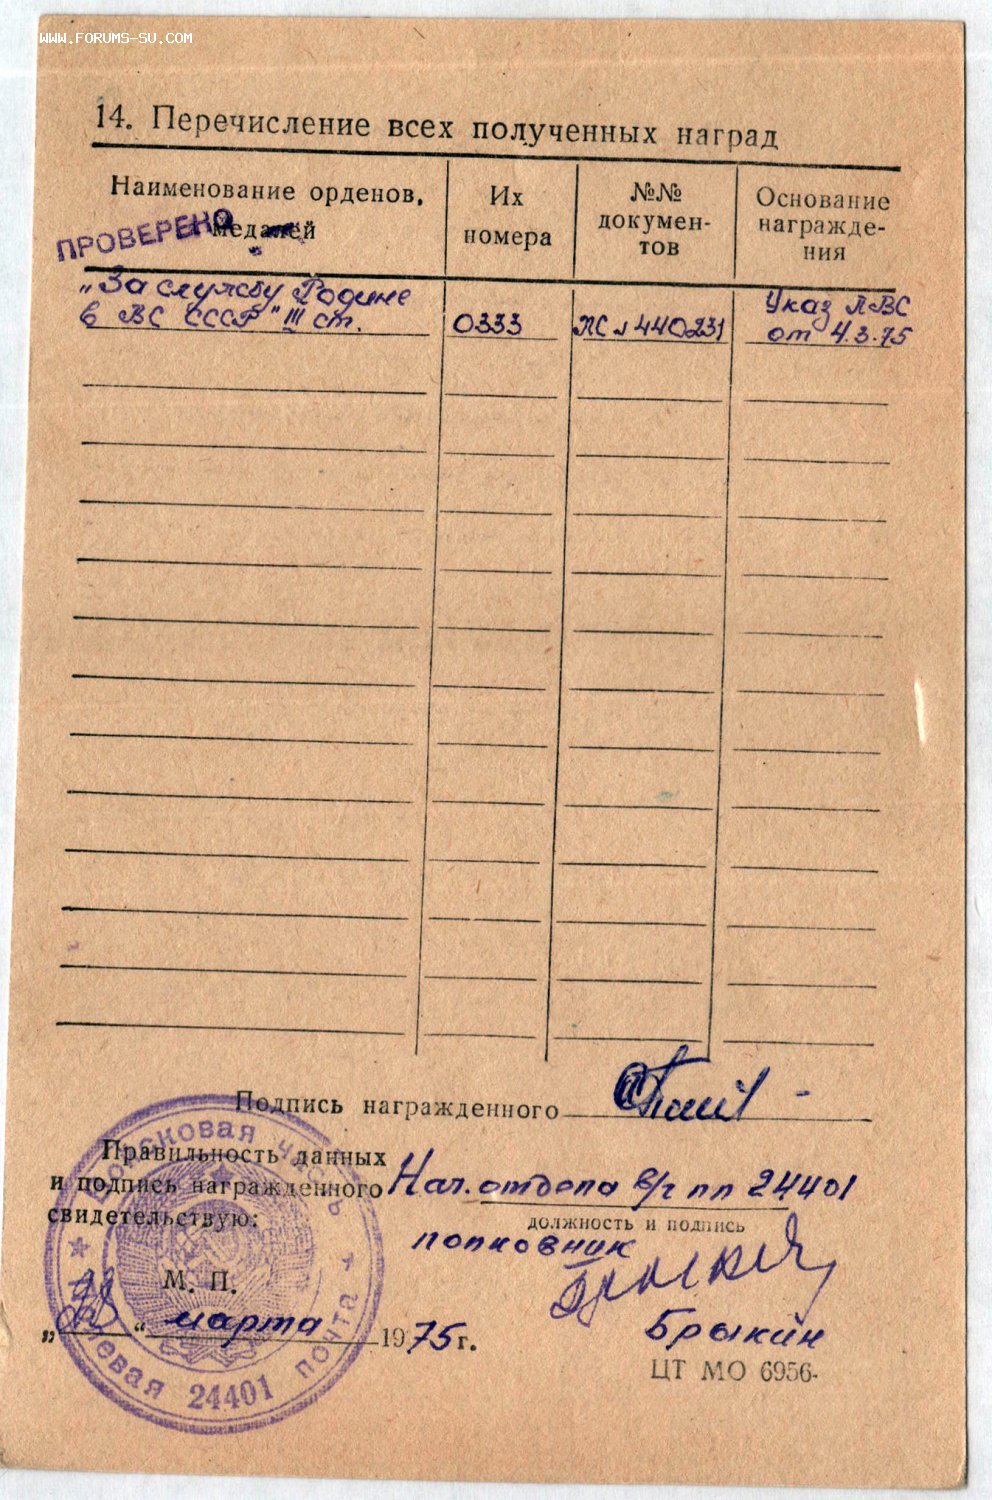 WWW.FORUMS-SU.COM
14. Перечисление всех полученных наград
Наименование орденов, медалей
Их номера
№№ документов
Основание награждения
ПРОВЕРЕНО
„За службу Родине
в ВС СССР" III ст.
0333
ПС № 440231
Указ ПВС
от 4.3.75
Подпись награжденного
Правильность данных
и подпись награжденного
свидетельствую:
Нач. отдела в/ч пп 24401
должность и подпись
полковник
Брыкин
М. П.
„28" марта 1975 г.
ЦТ МО 6956-
Войсковая часть
полевая почта
24401